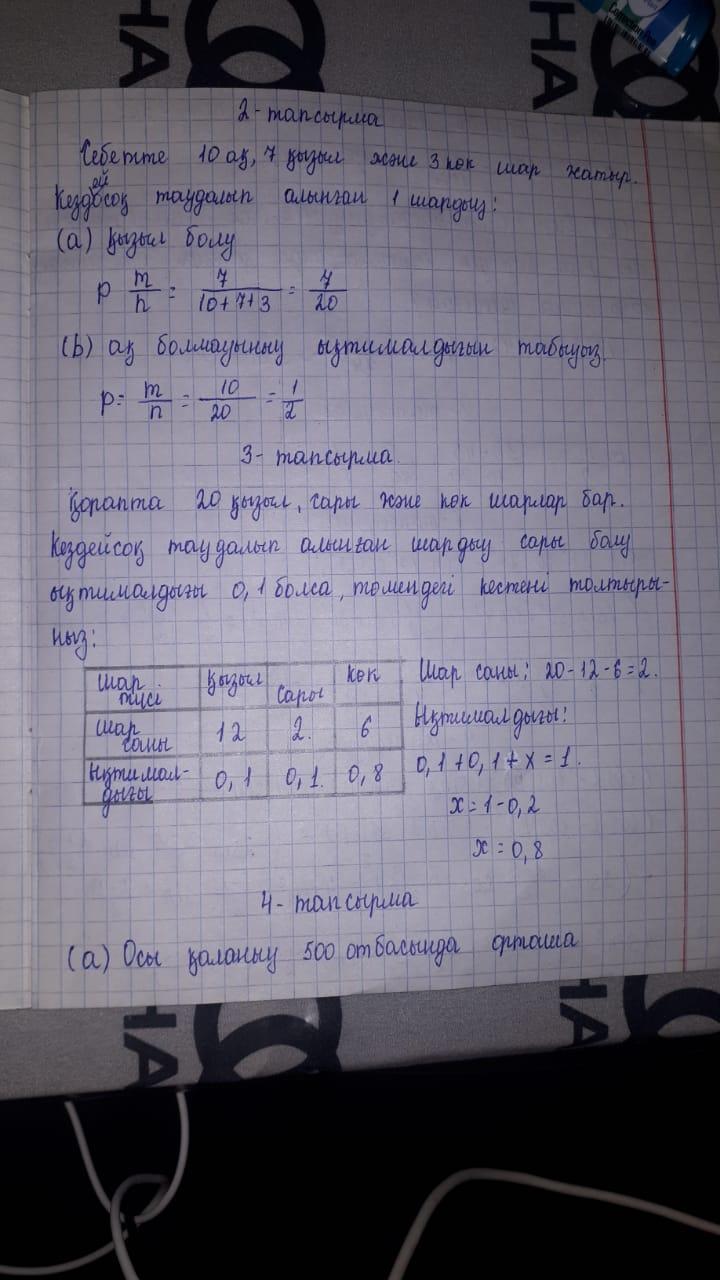 2-тапсырма
Себетте 10 ақ, 7 қызыл және 3 көк шар жатыр.
Кездейсоқ таудалып алынған 1 шардың:
(a) қызыл болу
P m/n = 7/10+7+3 = 7/20
(b) ақ болмауының ықтималдығын табыңыз.
P= m/n = 10/20 = 1/2
3- тапсырма.
Қорапта 20 қызыл, сары және көк шарлар бар.
Кездейсоқ таудалып алынған шардың сары болу
ықтималдығы 0,1 болса, төмендегі кестені толтыры-
ңыз:
Шар түсі қызыл сары көк
Шар саны 12 2. 6
Ықтимал-дығы 0,1 0,1. 0,8
Шар саны: 20-12-6=2.
Ықтималдығы:
0,1+0,1+x=1.
x=1-0,2
x=0,8
4- тапсырма
(a) Осы қаланың 500 отбасында орташа
НА
НА
НА
НА